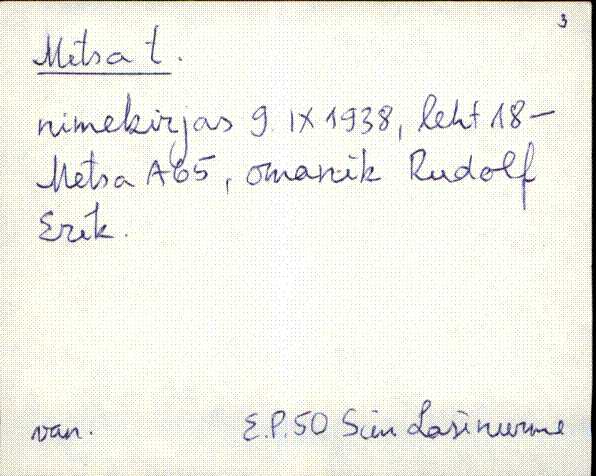 3
Metsa t.
nimekirjas 9. IX 1938, leht 18-
Metsa A65, omanik Rudolf
Erik.
van. E.P.50 Sim Lasinurme